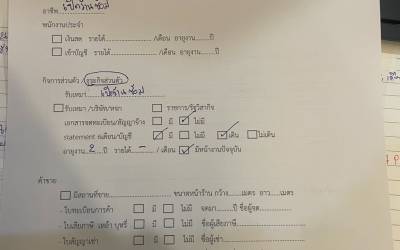 อาชีพ....เปิดร้านซ่อม
พนักงานประจำ
☐ เงินสด รายได้............../เดือน อายุงาน......ปี
☐ เข้าบัญชี รายได้............../เดือน อายุงาน......ปี
กิจการส่วนตัว / ธุรกิจส่วนตัว
รับเหมา......เปิดร้านซ่อม
☐ รับเหมา /บริษัท/หจก ☐ ราชการ/รัฐวิสาหกิจ
เอกสารจดทะเบียน/สัญญาจ้าง ☐ มี ☑ ไม่มี
statement 6เดือน/บัญชี ☑ มี ☐ ไม่มี ☑ เดิน ☐ ไม่เดิน
อายุงาน 2 ปี รายได้ - / เดือน ☑ มีหน้างานปัจจุบัน
ค้าขาย
☐ มีสถานที่ขาย..............ขนาดหน้าร้าน กว้าง......เมตร ยาว......เมตร
- ใบทะเบียนการค้า ☐ มี ☐ ไม่มี จดมา......ปี ชื่อผู้จด..........
- ใบเสียภาษี เหล้า บุหรี่ ☐ มี ☐ ไม่มี ชื่อผู้เสียภาษี..........
- ใบสัญญาเช่า ☐ มี ☐ ไม่มี ชื่อผู้เช่า..........